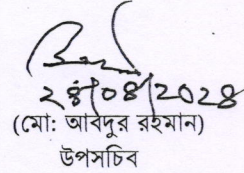 ২৪/০৪/২০২৪
(মো: আবদুর রহমান)
উপসচিব